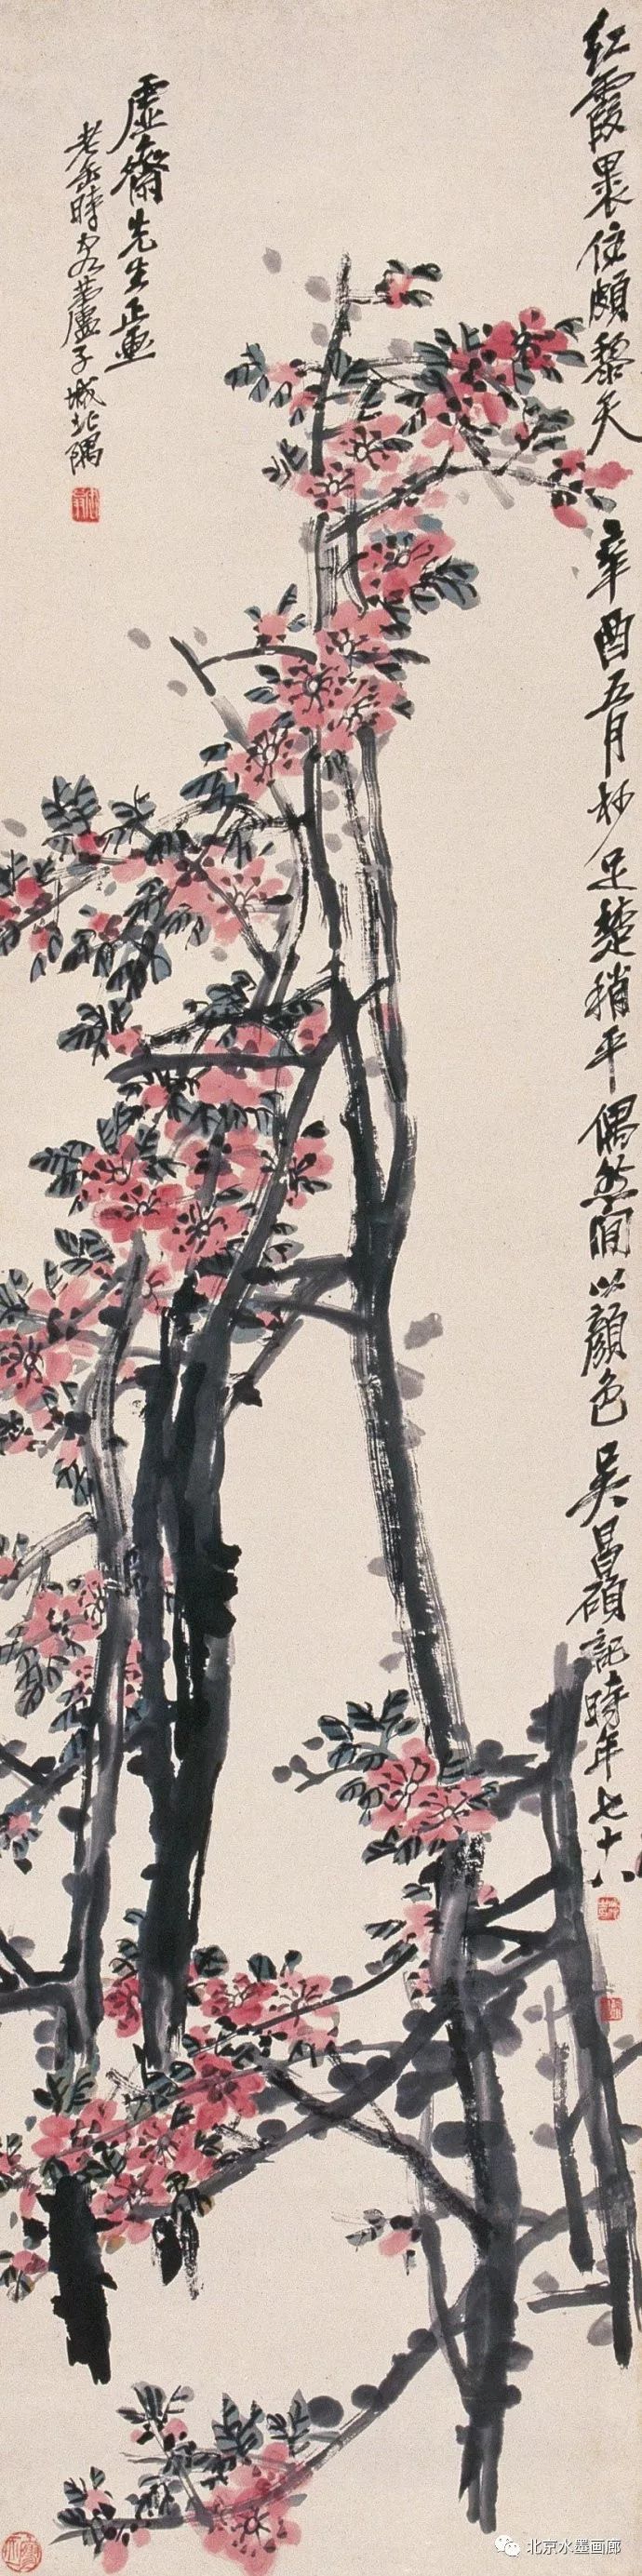 红霞裹住颇黎天 辛酉五月杪足楚稍平偶然间以颜色 吴昌硕記時年七十八
虚齋先生正画
老缶時客茅廬子城北隅
北京水墨画廊